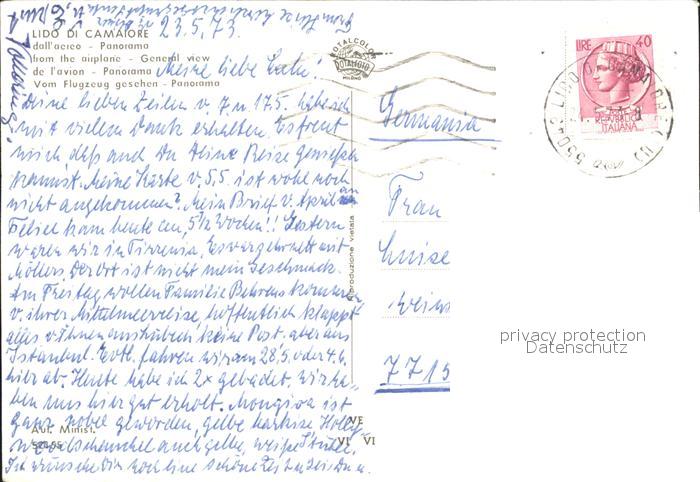 23.5.73.
LIDO DI CAMAIORE
dall'aereo - Panorama
from the airplane - General view
de l'avion - Panorama
Vom Flugzeug gesehen - Panorama
ROTALCOLOR
ROTALFOTO
MILANO
LIRE 40
REPUBBLICA
ITALIANA
55043 LIDO
Meine liebe
Deine lieben Zeilen v. 7. u. 17.5. habe ich
mit vielem Dank erhalten. Es freut
mich daß auch Du Deine Reise genießen
kannst. Meine Karte v. 5.5. ist wohl noch
nicht angekommen? Mein Brief v. April an
kam heute an, 5 1/2 Wochen!! Gestern
waren wir in Tirrenia,
Möllers. Der Ort ist nicht mein Geschmack.
Am Freitag wollen Familie Behrens kommen
v. ihrer Mittelmeerreise, hoffentlich klappt
alles v. Ihnen keine Post aber aus
Istanbul. Evtl. fahren wir am 28.5. oder 4.6.
hier ab. Heute habe ich 2x gebadet, wir ha-
ben uns hier gut erholt. Mongiva ist
ganz nobel geworden, gelbe Holly-
woodschaukel auch gelbe, weiße Stühle.
Ich wünsche Dir noch eine schöne Zeit
Germania
Frau
Luise
Wein
7715
Riproduzione vietata
Aut. Minist.
VE
VI VI
privacy protection
Datenschutz